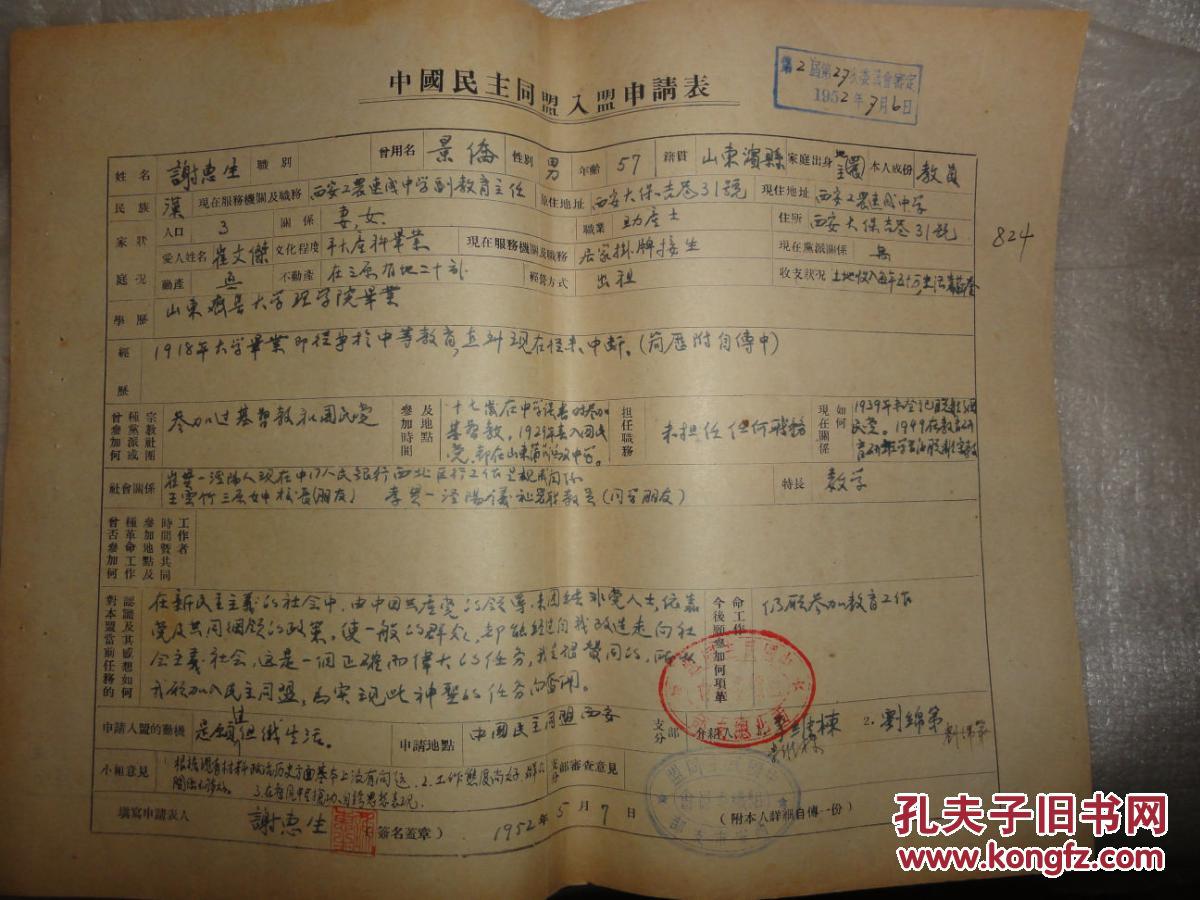 中國民主同盟入盟申請表
第2屆第27次委員會審定
1952年7月6日
824
姓名 謝惠生 職別 曾用名 景僑 性別 男 年齡 57 籍貫 山東濱縣 家庭出身 地主 本人成份 教員
民族 漢 現在服務機關及職務 西安工農速成中学副教育主任 原住地址 西安大保吉巷31號 現住地址 西安工農速成中学
家庭狀況 人口 3 關係 妻,女 職業 助產士 住所 西安大保吉巷31號
愛人姓名 崔文傑 文化程度 產科畢業 現在服務機關及職務 居家掛牌接生 現在黨派關係 無
動產 無 不動產 在三原有地二十 經營方式 出租 收支狀況 土地收入
學歷 山東齊魯大学理学院畢業
經歷 1918年大学畢業即從事於中等教育,直到現在從未中断。(簡歷附自傳中)
曾參加何種黨派或宗教社團 参加过基督教和國民党
參加時間及地點 十七歲在中学读書时参加
基督教,1929年加入國民
党,都在山東
担任職務 未担任任何職務
現在關係如何 1939年未登記
民党。1949在教育
社會關係 崔 涇陽人現在中人民銀行西北区行工作是親戚関係
王雲竹三原女中校長(朋友) 李 涇陽 教員(同学朋友)
特長 数学
曾否參加何種革命工作參加地點及時間暨共同工作者
對本盟當前任務的認識及其感想如何
在新民主主義的社会中,由中国共產党的領導,来團結非党人士,依靠
党及共同綱領的政策,使一般的群众,都能經过自我改造走向社
会主義社会,这是一個正確而偉大的任務,我是很贊同的,所以
我願加入民主同盟,為实現此神聖的任務而奮鬥。
今後願參加何項革命工作 仍願参加教育工作
申請入盟的動機 是願過組織生活。 申請地點 中國民主同盟西安 支分部 介紹人 2. 劉錦第
小組意見 根据現有材料政治历史方面基本上没有問題。2.工作態度尚好,群众
支分部審查意見
填寫申請表人 謝惠生 (簽名蓋章) 1952年5月7日 (附本人詳細自傳一份)
孔夫子旧书网
www.kongfz.com